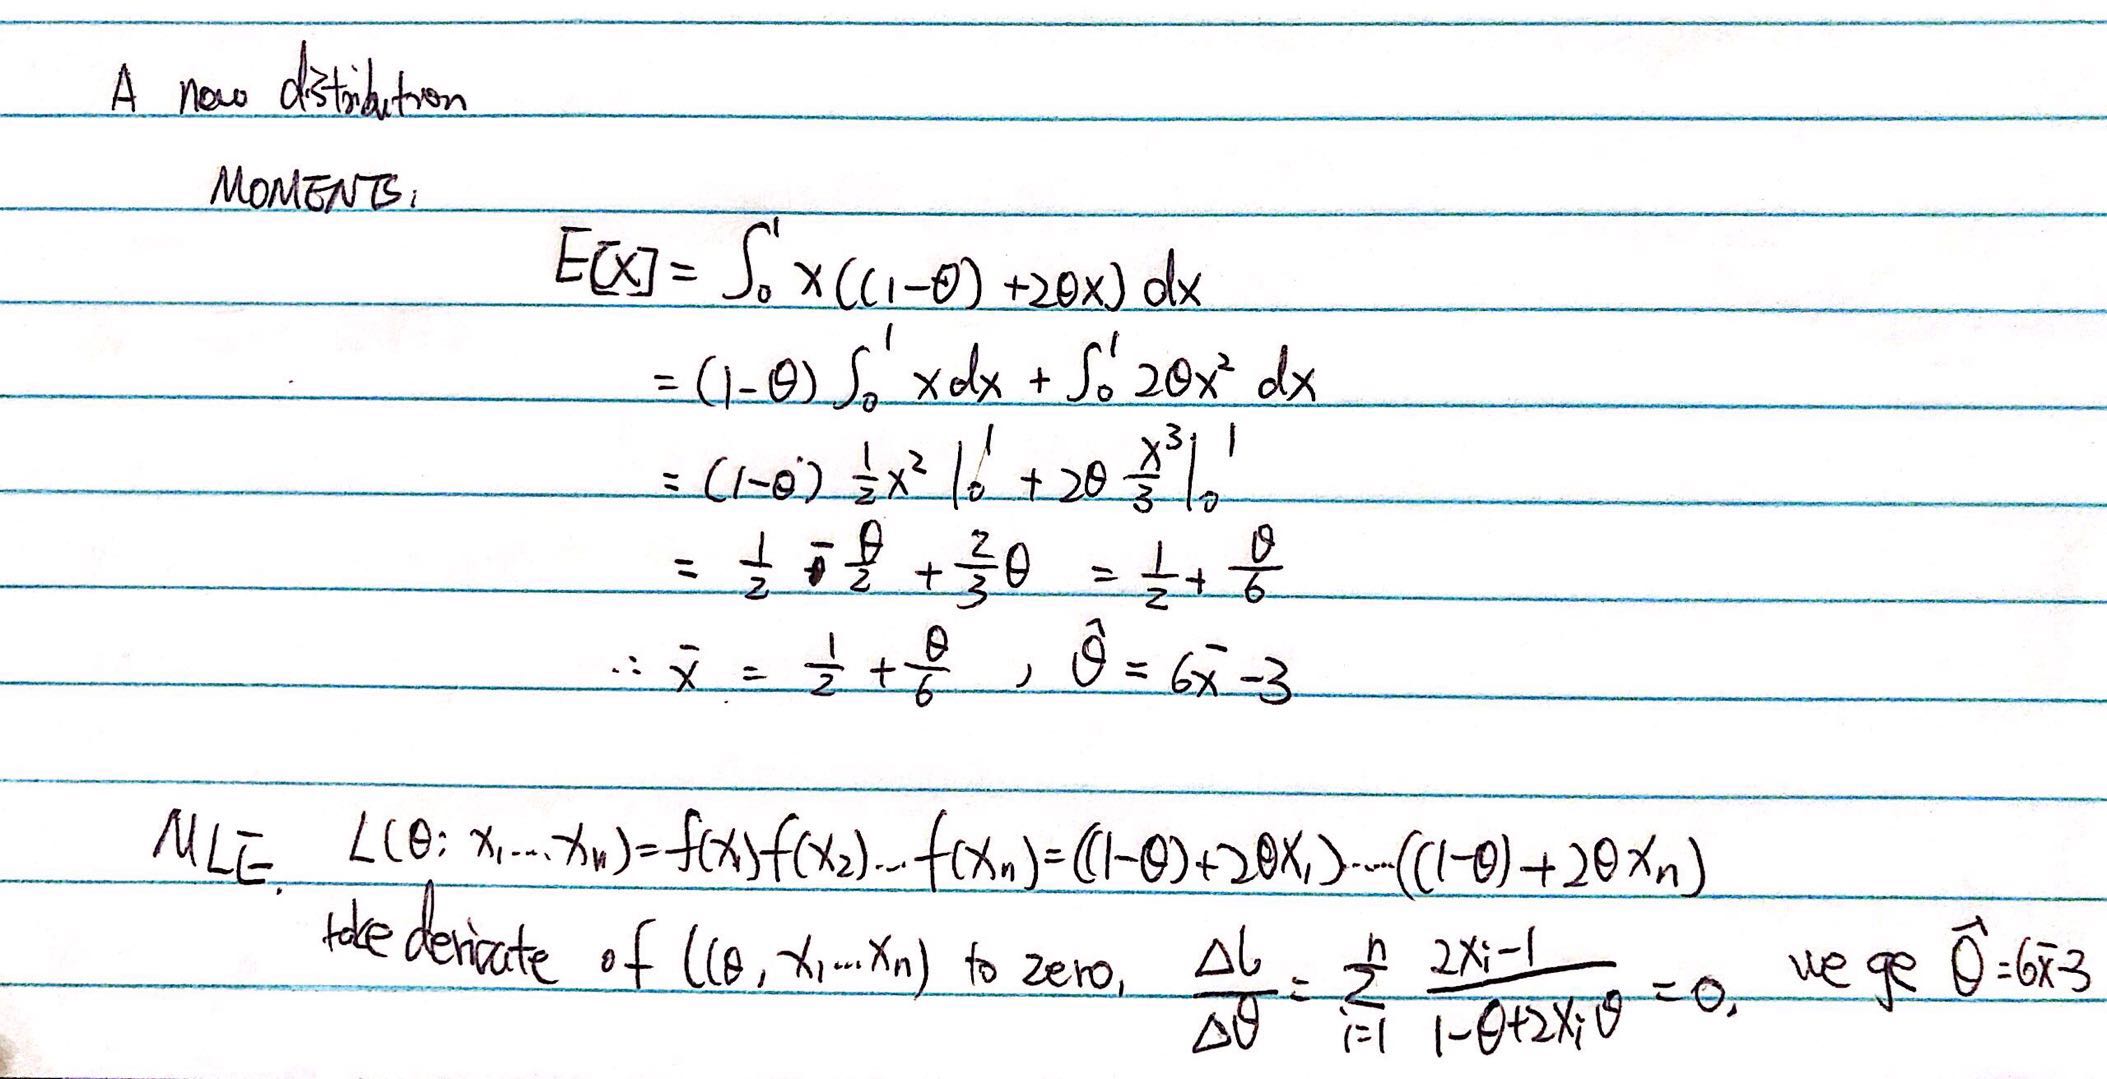 A new distribution
MOMENTS:
E[X] = ∫₀¹ x((1-θ)+2θx) dx
= (1-θ) ∫₀¹ x dx + ∫₀¹ 2θx² dx
= (1-θ) ½x² |₀¹ + 2θ x³/3 |₀¹
= 1/2 - θ/2 + 2/3 θ = 1/2 + θ/6
∴ x̄ = 1/2 + θ/6 , θ̂ = 6x̄ -3
MLE. L(θ: x₁...xₙ) = f(x₁)f(x₂)...f(xₙ) = ((1-θ)+2θx₁).....((1-θ)+2θxₙ)
take derivate of l(θ, x₁...xₙ) to zero, Δl/Δθ = Σᵢ₌₁ⁿ (2xᵢ-1)/(1-θ+2xᵢθ) = 0, we ge θ̂ = 6x̄-3